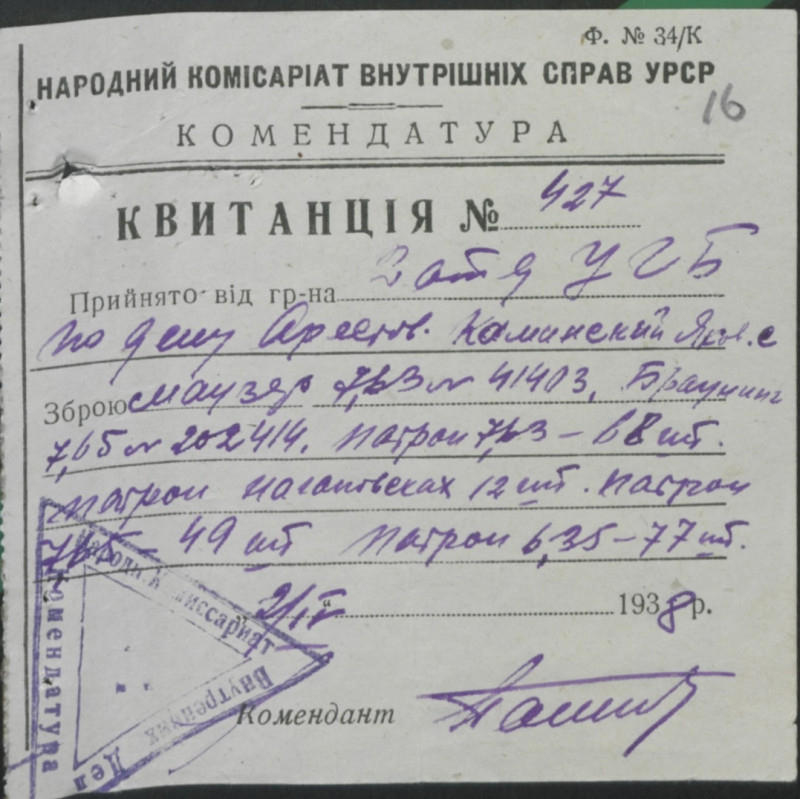 Ф. № 34/К
НАРОДНИЙ КОМІСАРІАТ ВНУТРІШНІХ СПРАВ УРСР
16
КОМЕНДАТУРА
КВИТАНЦІЯ № 427
Прийнято від гр-на 2 отд УГБ
по делу Арестов. Каминский Яков. с
Зброю маузер 7,63 № 41403, Браунинг
7,65 № 202414. патрон 7,63 – 68 шт.
патрон нагановских 12 шт. патрон
7,65 – 49 шт патрон 6,35 – 77 шт.
2/IV 1938 р.
Комендант
Народн. Комиссариат
Внутренних Дел
Комендатура